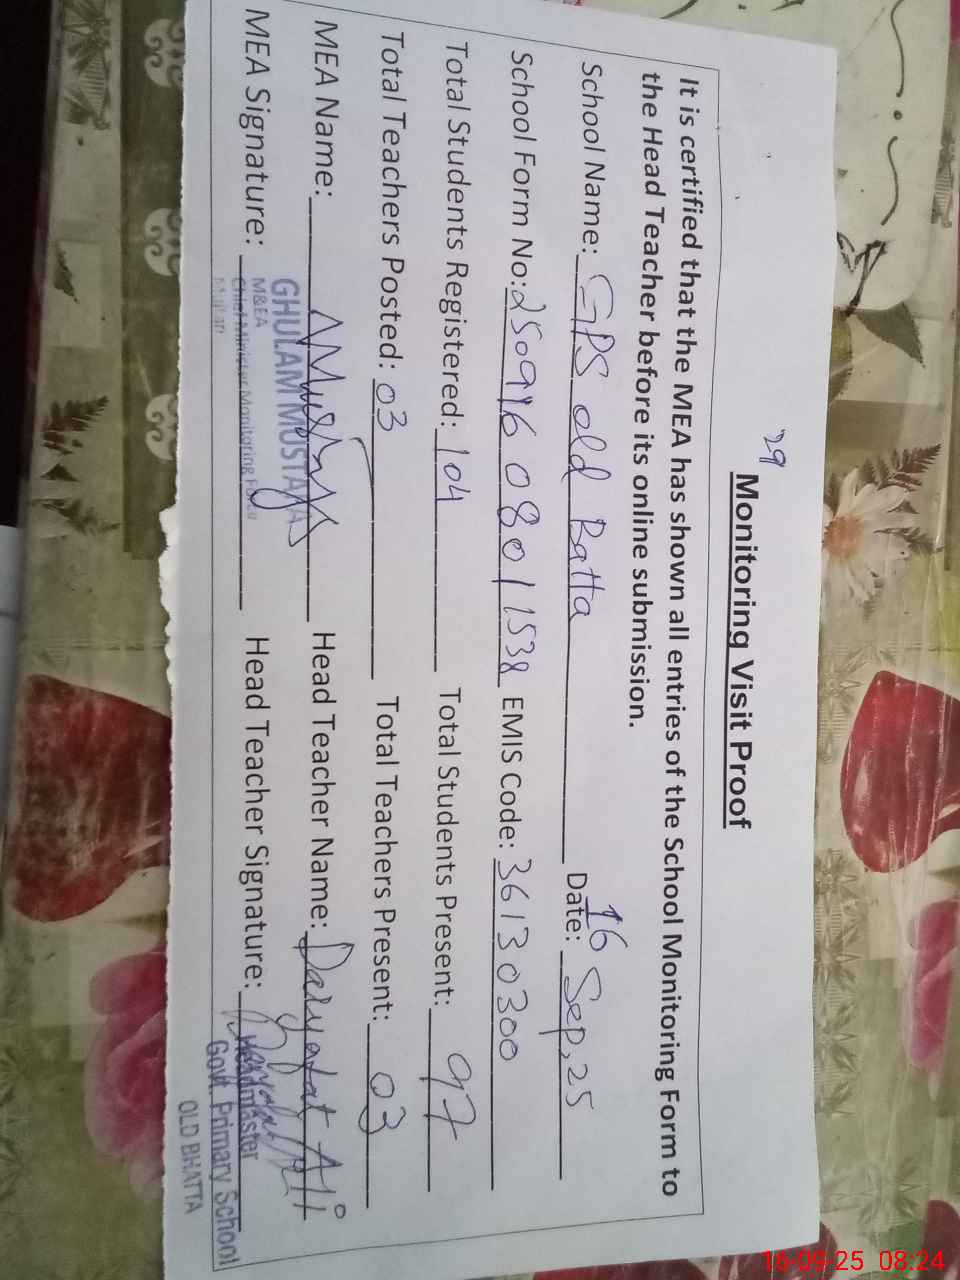 29
Monitoring Visit Proof
It is certified that the MEA has shown all entries of the School Monitoring Form to
the Head Teacher before its online submission.
School Name: GPS old Batta Date: 16 Sep, 25
School Form No: 250916 080 11538 EMIS Code: 36130300
Total Students Registered: 104 Total Students Present: 97
Total Teachers Posted: 03 Total Teachers Present: 03
MEA Name: Head Teacher Name: Ali
GHULAM MUSTAFA
MEA Signature: Head Teacher Signature:
M&EA
Chief Minister Monitoring Force
Multan
Headmaster
Govt. Primary School
OLD BHATTA
16-09-25 08:24